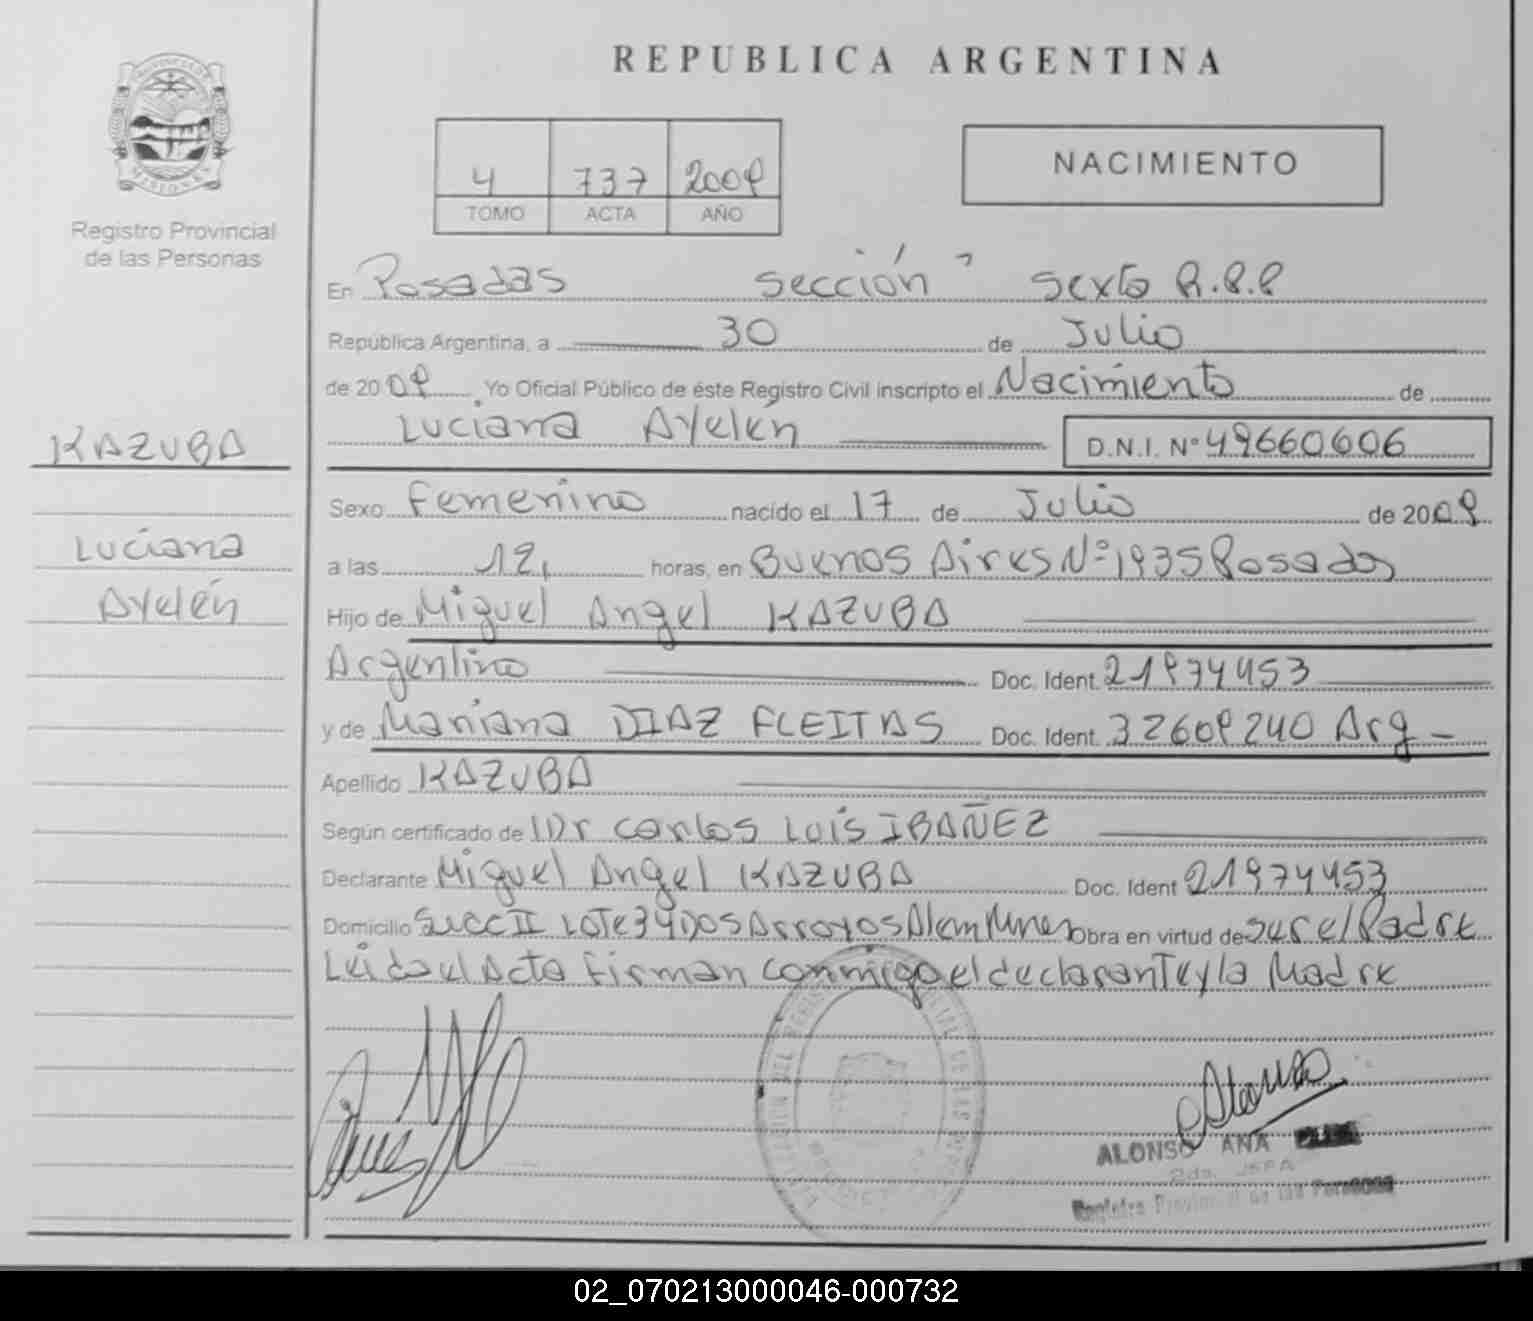 REPUBLICA ARGENTINA
PROVINCIA DE
MISIONES
Registro Provincial
de las Personas
4 737 2009
TOMO ACTA AÑO
NACIMIENTO
En Posadas sección sexta R.P.P
República Argentina, a 30 de Julio
de 2009 Yo Oficial Público de éste Registro Civil inscripto el Nacimiento de
Luciana Ayelén D.N.I. Nº 49660606
KAZUBA
Luciana
Ayelén
Sexo Femenino nacido el 17 de Julio de 2009
a las 12, horas, en Buenos Aires Nº 1935 Posadas
Hijo de Miguel Angel KAZUBA
Argentino Doc. Ident. 21974453
y de Mariana DIAZ FLEITAS Doc. Ident. 32609240 Arg
Apellido KAZUBA
Según certificado de Dr Carlos Luis IBAÑEZ
Declarante Miguel Angel KAZUBA Doc. Ident 21974453
Domicilio Secc II Lote 34 Dos Arroyos Alem Obra en virtud de ser el Padre
Leida el Acta firman conmigo el declarante y la Madre
ALONSO ANA
Registro Provincial de las Personas
02_070213000046-000732